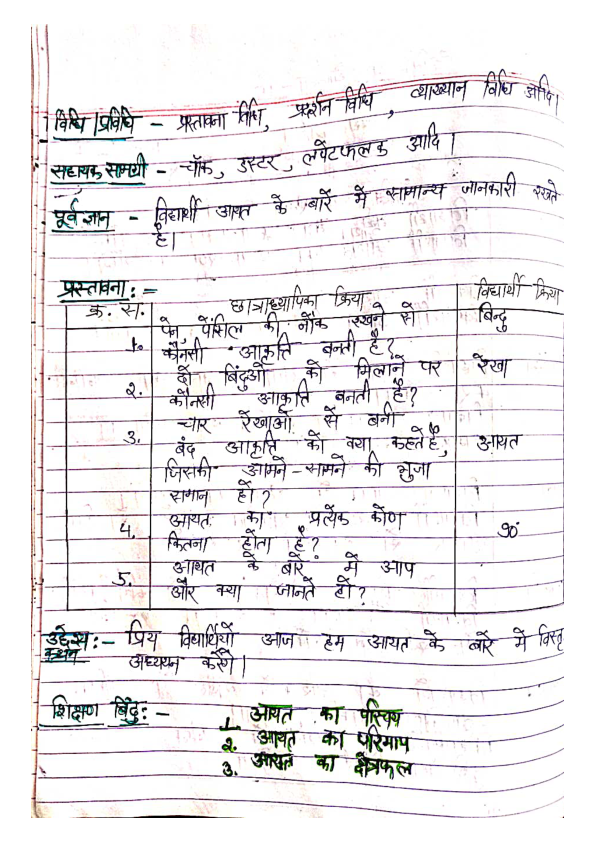 विधि / प्रविधि - प्रस्तावना विधि, प्रदर्शन विधि, व्याख्यान विधि आदि।
सहायक सामग्री - चॉक, डस्टर, लपेटफलक आदि।
पूर्व ज्ञान - विद्यार्थी आयत के बारे में सामान्य जानकारी रखते
है।
प्रस्तावना :=
क्र. सं. छात्राध्यापिका क्रिया विद्यार्थी क्रिया
1. पेन, पेंसिल की नोंक रखने से बिन्दु
कौनसी आकृति बनती है?
2. दो बिंदुओं को मिलाने पर रेखा
कौनसी आकृति बनती है?
3. चार रेखाओं से बनी
बंद आकृति को क्या कहते है, आयत
जिसकी आमने-सामने की भुजा
समान हो?
4. आयत का प्रत्येक कोण 90°
कितना होता है?
5. आयत के बारे में आप
और क्या जानते हो?
उद्देश्य कथन :- प्रिय विद्यार्थियों आज हम आयत के बारे में विस्तृ
अध्ययन करेंगे।
शिक्षण बिंदु :-
1. आयत का परिचय
2. आयत का परिमाप
3. आयत का क्षेत्रफल